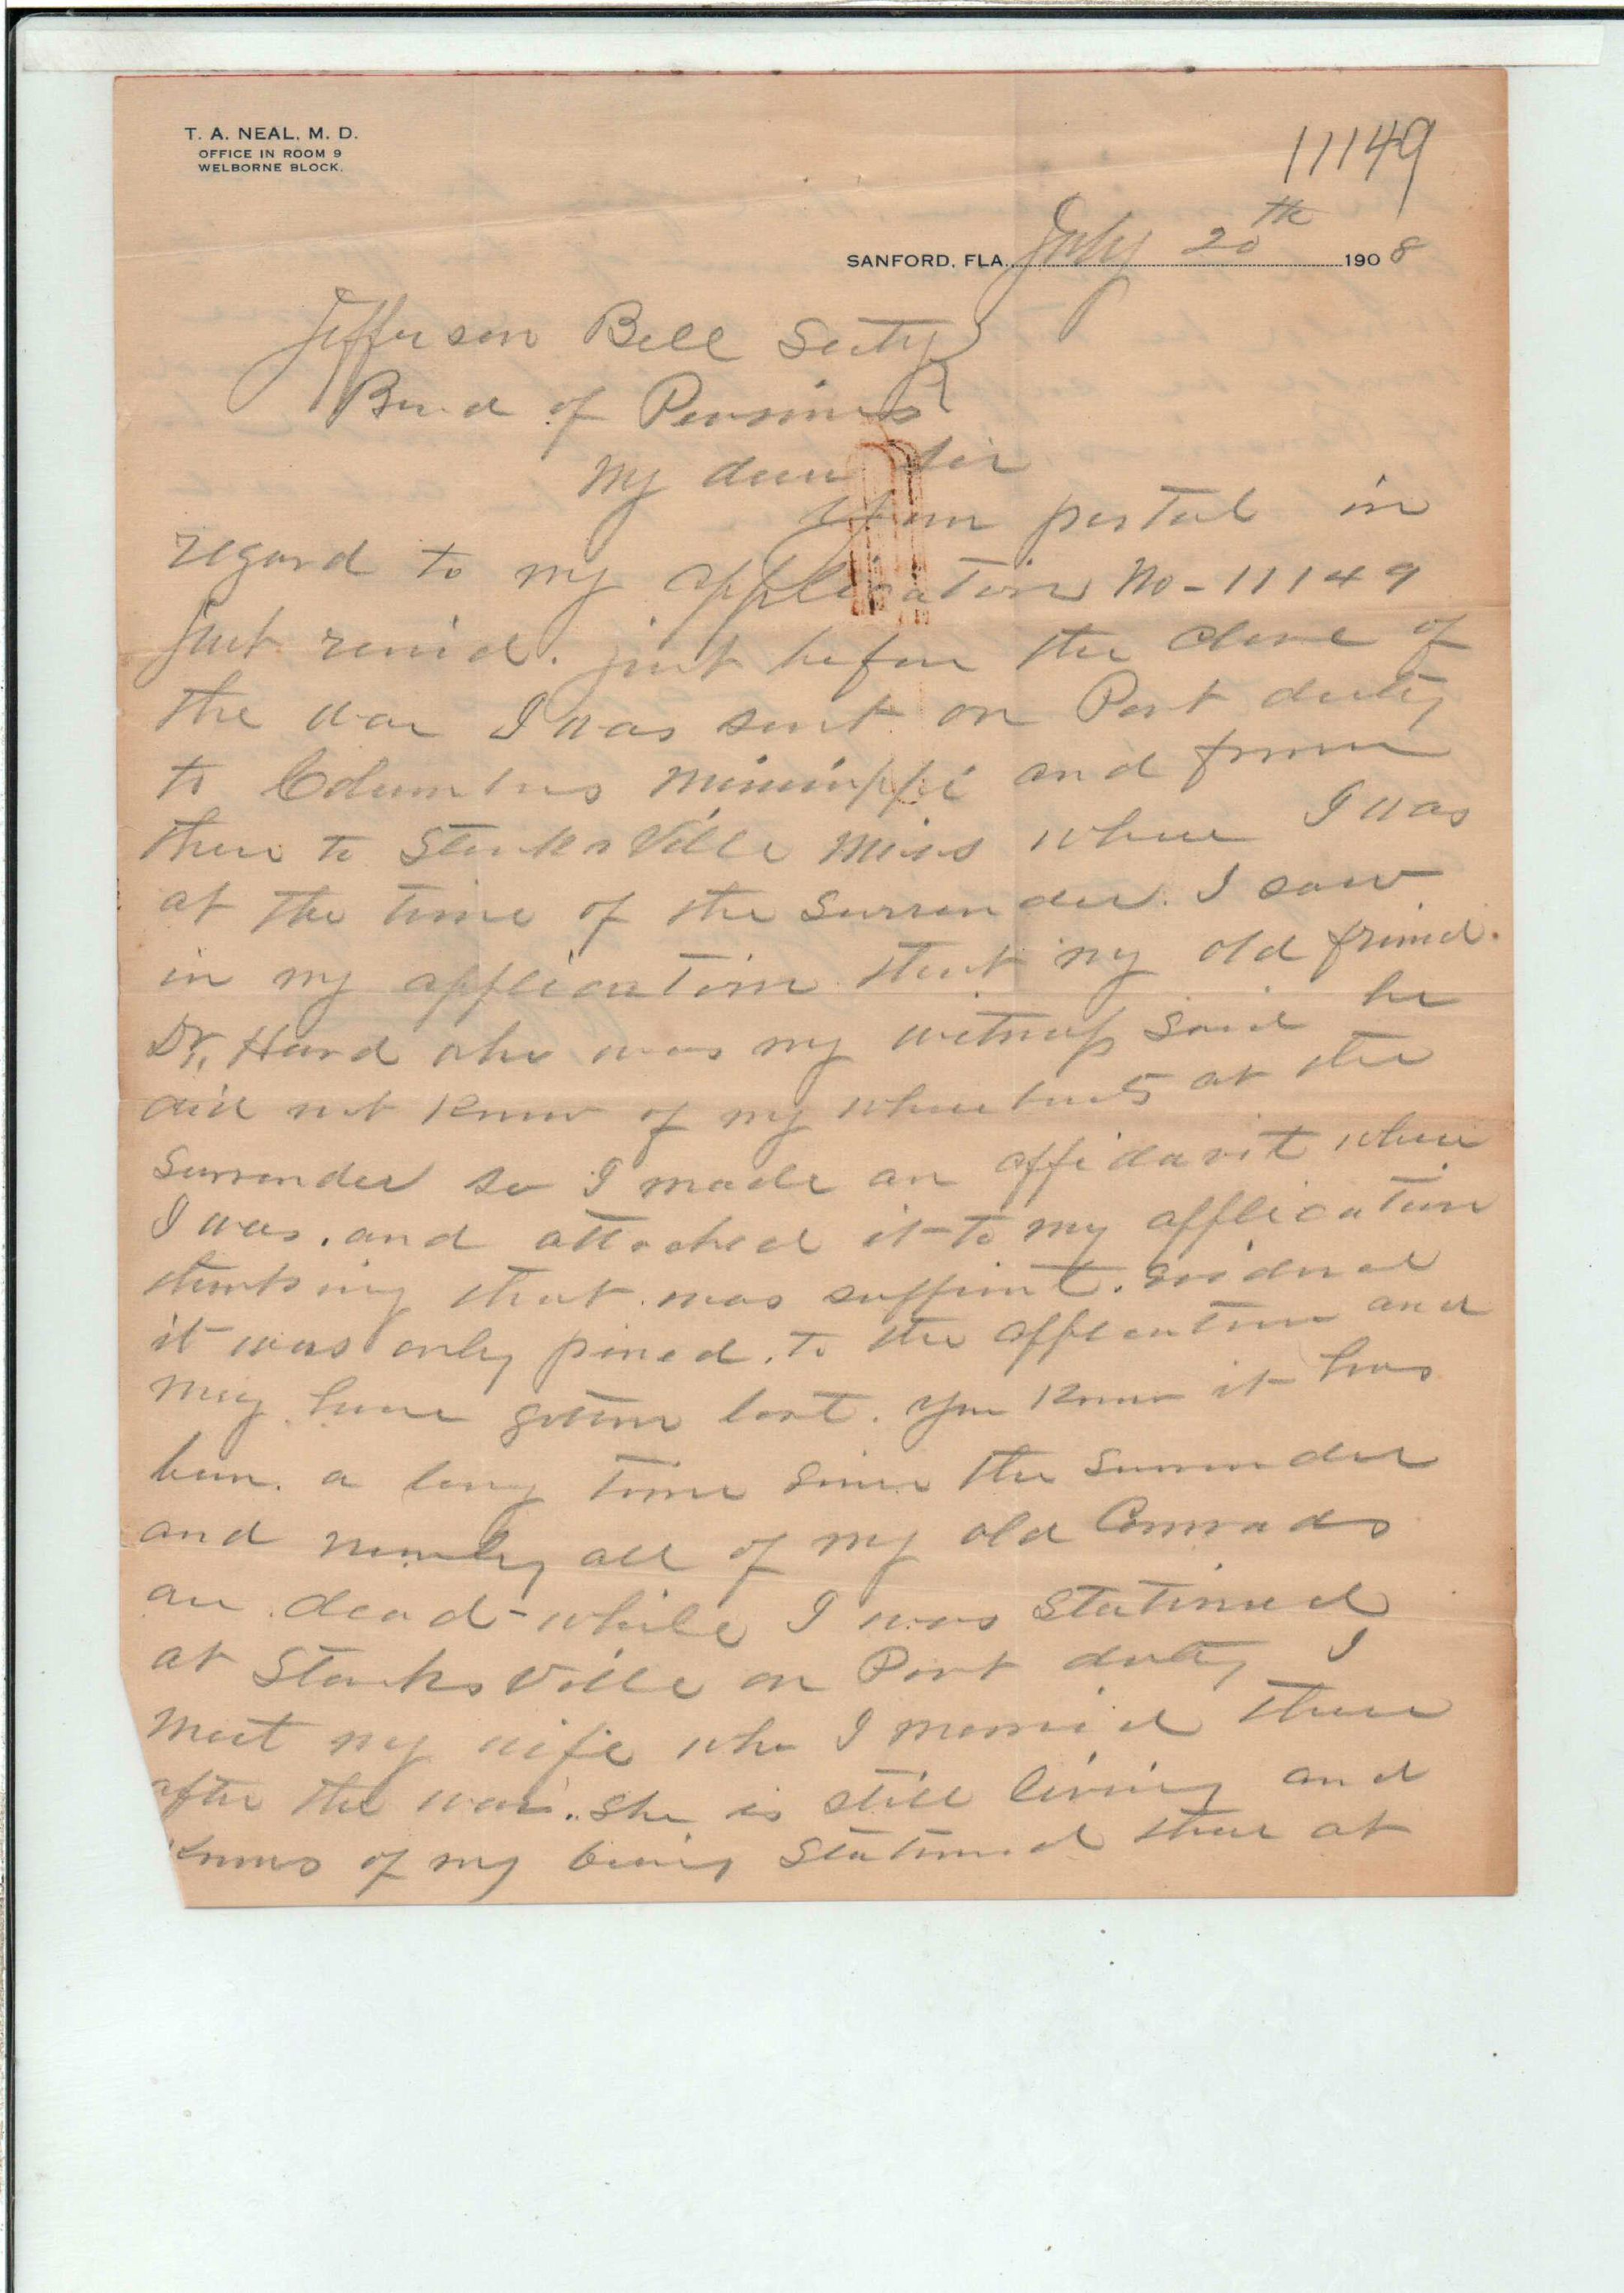 T. A. NEAL, M. D.
OFFICE IN ROOM 9
WELBORNE BLOCK.
11149
SANFORD, FLA. July 20th 1908
Jefferson Bell Secty
Board of Pensions
My dear Sir
Your postal in
regard to my application No - 11149
just receivd. just before the close of
the war I was sent on Post duty
to Columbus Mississippi and from
there to Starksville Miss where I was
at the time of the surrender. I saw
in my application that my old friend.
Dr, Hard who was my witness said he
did not know of my whereabouts at the
Surrender so I made an affidavit where
I was. and attached it to my application
thinking that was
it was only pined. to the application and
may have gotten lost. you know it has
been. a long time since the surrender
and nearly all of my old Comrads
are dead - while I was stationed
at Starksville on Post duty I
meet my wife who I married there
after the war. She is still living and
knows of my being stationed there at